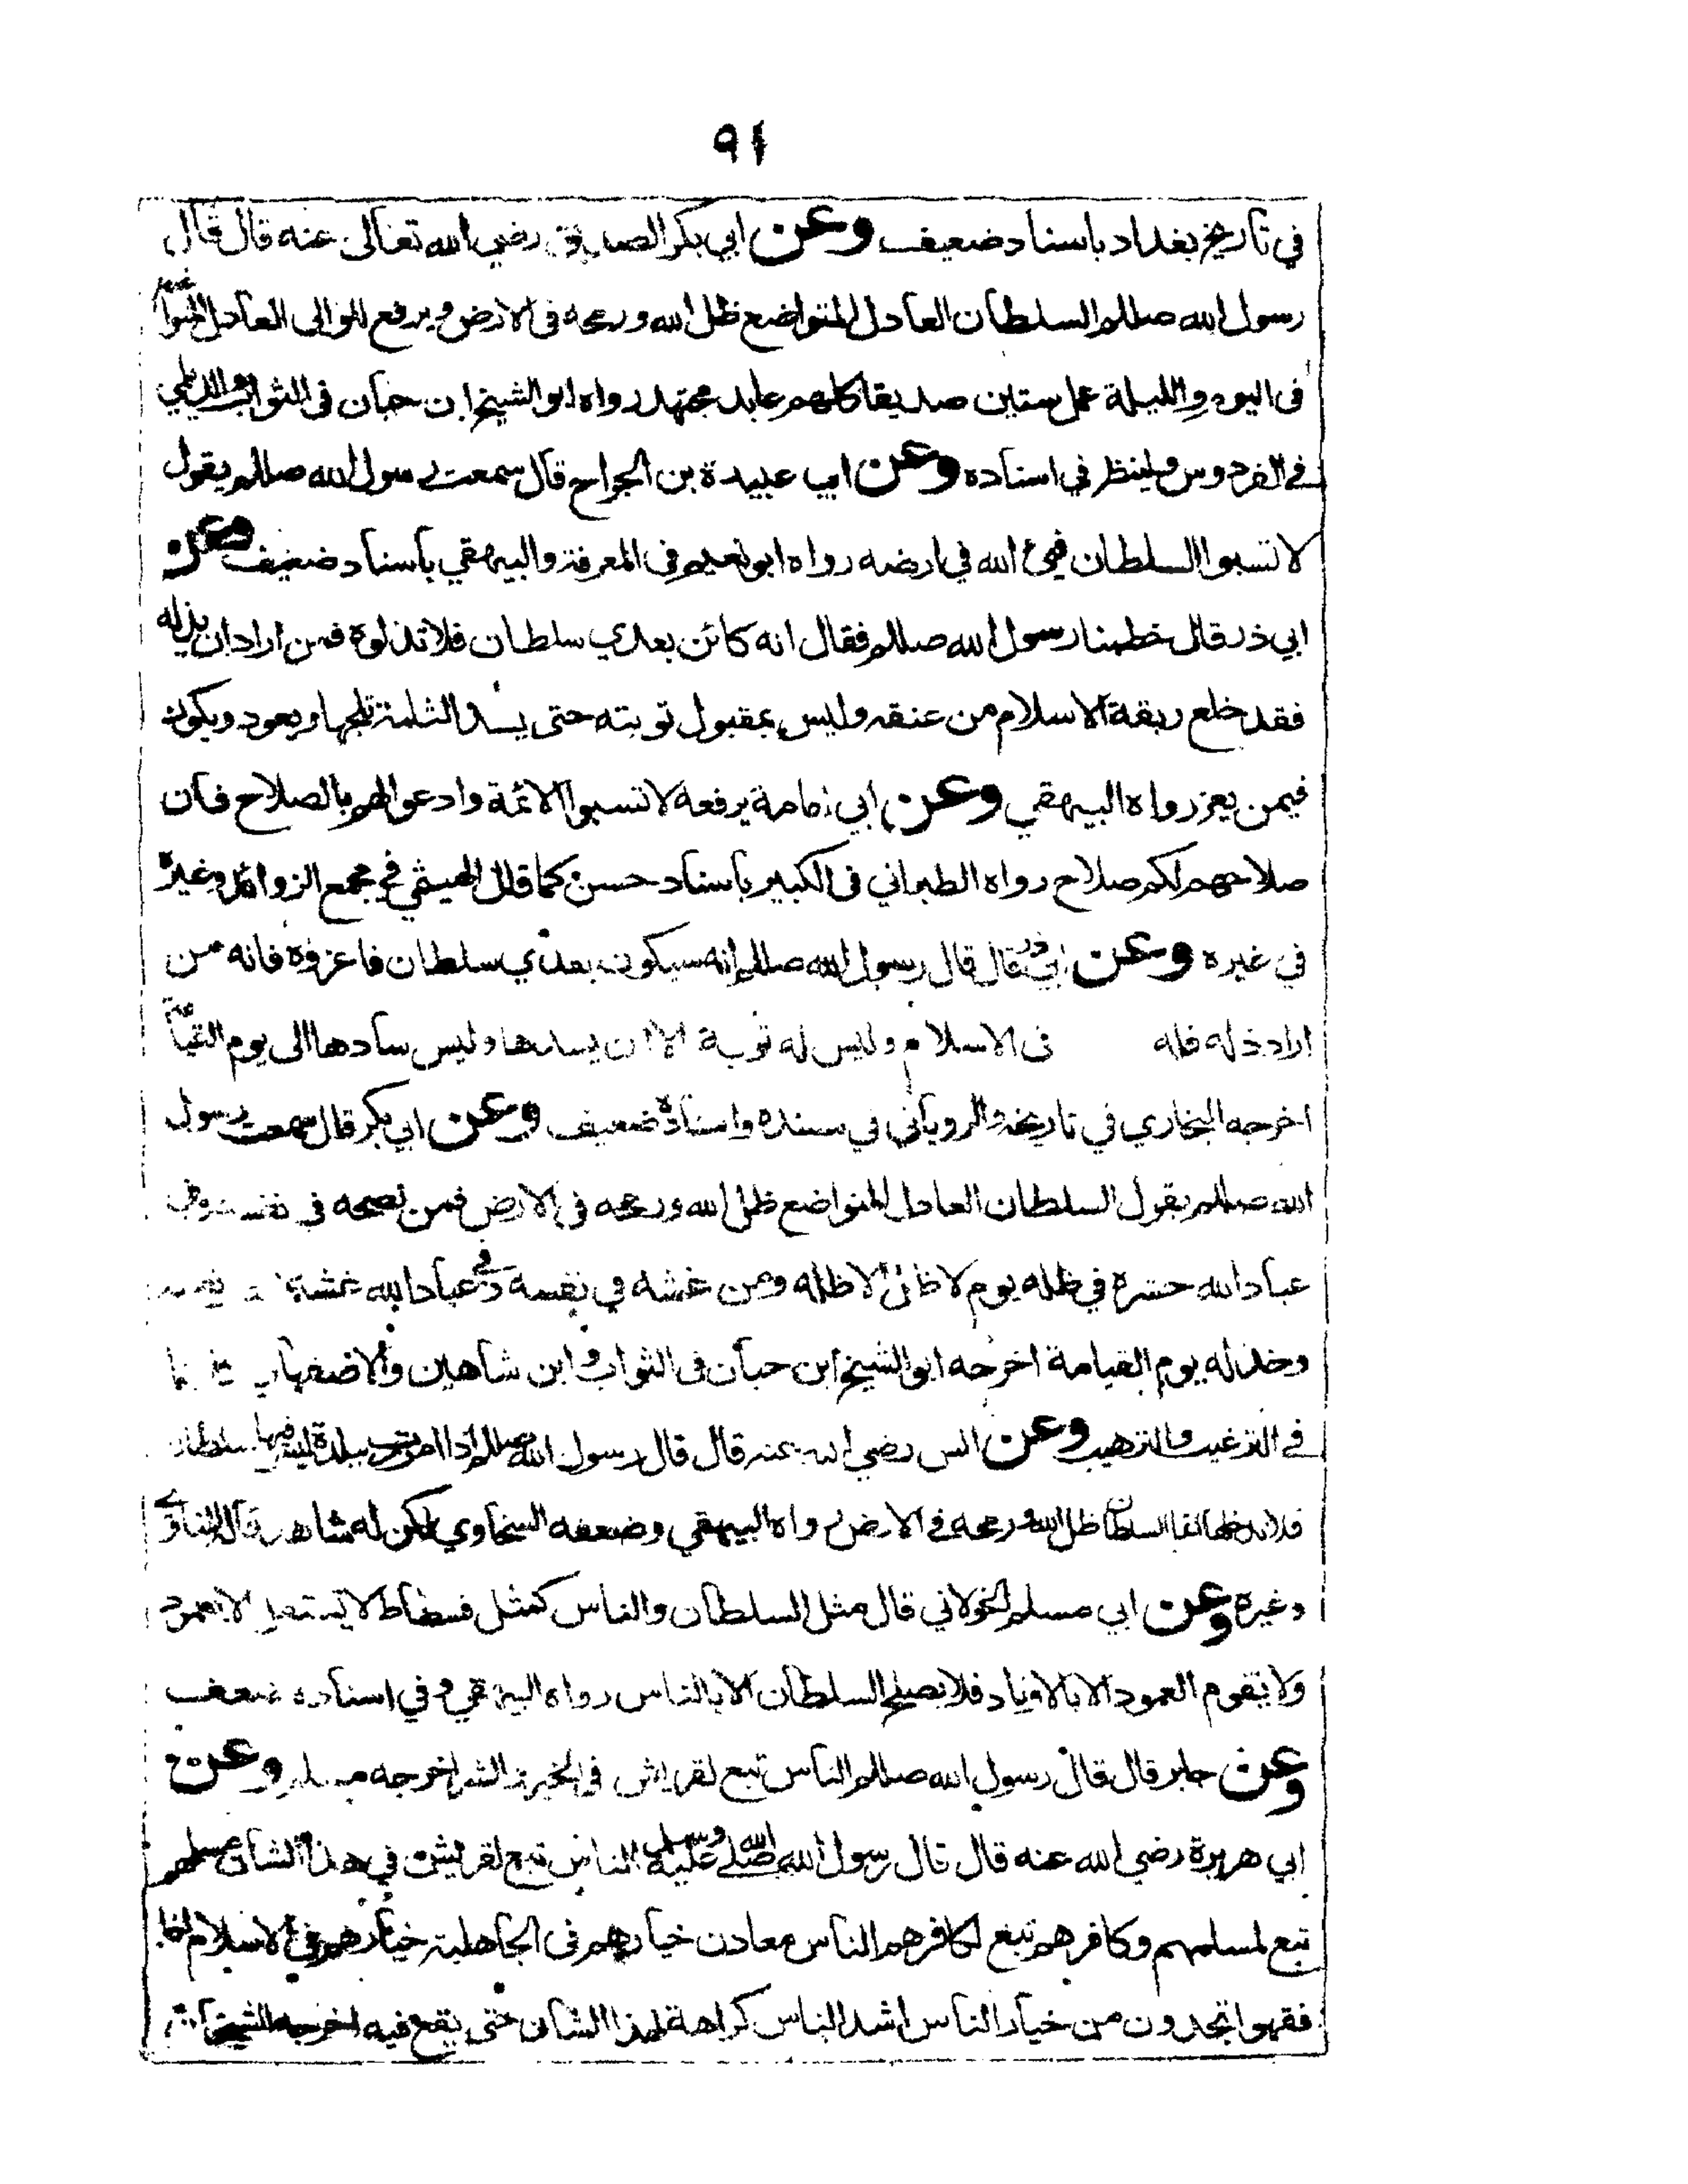 ٩١
في تاريخ بغداد باسناد ضعيف وعن ابي بكر الصديق رضي الله تعالى عنه قال قال
رسول الله صللم السلطان العادل المتواضع ظل الله ورمحه فى الارض ويرفع للوالى العادل المتواضع
فى اليوم والليلة عمل ستين صديقا كلهم عابد مجتهد رواه ابو الشيخ ابن حبان فى الثواب والديلمي
في الفردوس ولينظر في اسناده وعن ابي عبيدة بن الجراح قال سمعت رسول الله صللم يقول
لا تسبوا السلطان فيئ الله في ارضه رواه ابو نعيم فى المعرفة والبيهقي باسناد ضعيف وعن
ابي ذر قال خطبنا رسول الله صللم فقال انه كائن بعدي سلطان فلا تذلوه فمن اراد ان يذله
فقد خلع ربقة الاسلام من عنقه وليس بمقبول توبته حتى يسد الثلمة ثلمها ويعود ويكون
فيمن يعز رواه البيهقي وعن ابي امامة يرفعه لا تسبوا الائمة وادعوا لهم بالصلاح فان
صلاحهم لكم صلاح رواه الطبراني فى الكبير باسناد حسن كما قال الهيثمي في مجمع الزوائد وغيره
في غيره وعن ابي ذر قال قال رسول الله صللم انه سيكون بعدي سلطان فاعزوه فانه من
اراد ذله فله فى الاسلام وليس له توبة الا ان يسدها وليس سادها الى يوم القيامة
اخرجه البخاري في تاريخه والروياني في مسنده واسناده ضعيف وعن ابي بكر قال سمعت رسول
الله صللم يقول السلطان العادل المتواضع ظل الله ورمحه فى الارض فمن نصحه فى نفسه وفي
عباد الله حشره في ظله يوم لا ظل الا ظله ومن غشه في نفسه وفي عباد الله غشه
وخذله يوم القيامة اخرجه ابو الشيخ ابن حبان فى الثواب وابن شاهين والاصفهاني
في الترغيب والترهيب وعن انس رضي الله عنه قال قال رسول الله صللم اذا مررت ببلدة ليس فيها سلطان
فلا تدخلها انما السلطان ظل الله ورمحه في الارض رواه البيهقي وضعفه السخاوي لكن له شاهد قال المناوي
وغيره وعن ابي مسلم الخولاني قال مثل السلطان والناس كمثل فسطاط لا يستقل الا بعمود
ولا يقوم العمود الا بالاوتاد فلا يصلح السلطان الا بالناس رواه البيهقي وفي اسناده ضعف
وعن جابر قال قال رسول الله صللم الناس تبع لقريش فى الخير والشر اخرجه مسلم وعن
ابي هريرة رضي الله عنه قال قال رسول الله صلى الله عليه وسلم الناس تبع لقريش في هذا الشان مسلمهم
تبع لمسلمهم وكافرهم تبع لكافرهم الناس معادن خيارهم فى الجاهلية خيارهم في الاسلام اذا
فقهوا تجدون من خيار الناس اشد الناس كراهة لهذا الشان حتى يقع فيه اخرجه الشيخان